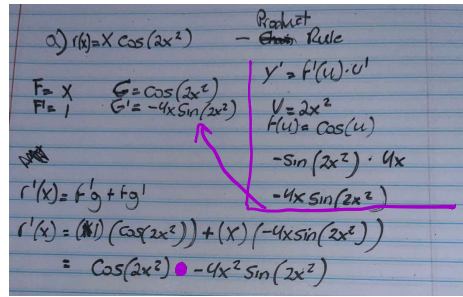 a) r(x)= x cos(2x²)
Product
- Rule
F= x G= cos(2x²)
F'= 1 G'= -4x sin(2x²)
y' = f'(u)·u'
U= 2x²
f(u)= cos(u)
-sin(2x²) · 4x
-4x sin(2x²)
r'(x)= f'g + fg'
r'(x)= (1)(cos(2x²)) + (x)(-4x sin(2x²))
= cos(2x²) - 4x² sin(2x²)